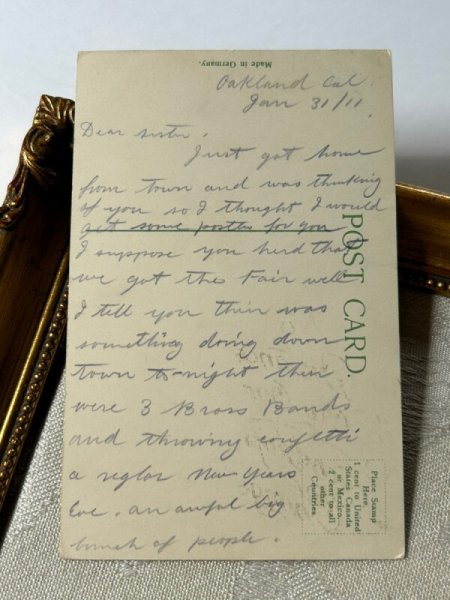 Made in Germany.
Oakland Cal
Jan 31/11
Dear sister.
Just got home
from town and was thinking
of you so I thought I would
get some postles for you
I suppose you herd that
we got the Fair well
I tell you thir was
something doing down
town to-night thir
were 3 Brass Bands
and throwing confetti
a reglor New Years
Eve. an awful big
bunch of people.
POST CARD.
Place Stamp
Here.
1 cent to United
States, Canada
or Mexico.
2 cent to all
other
Countries.